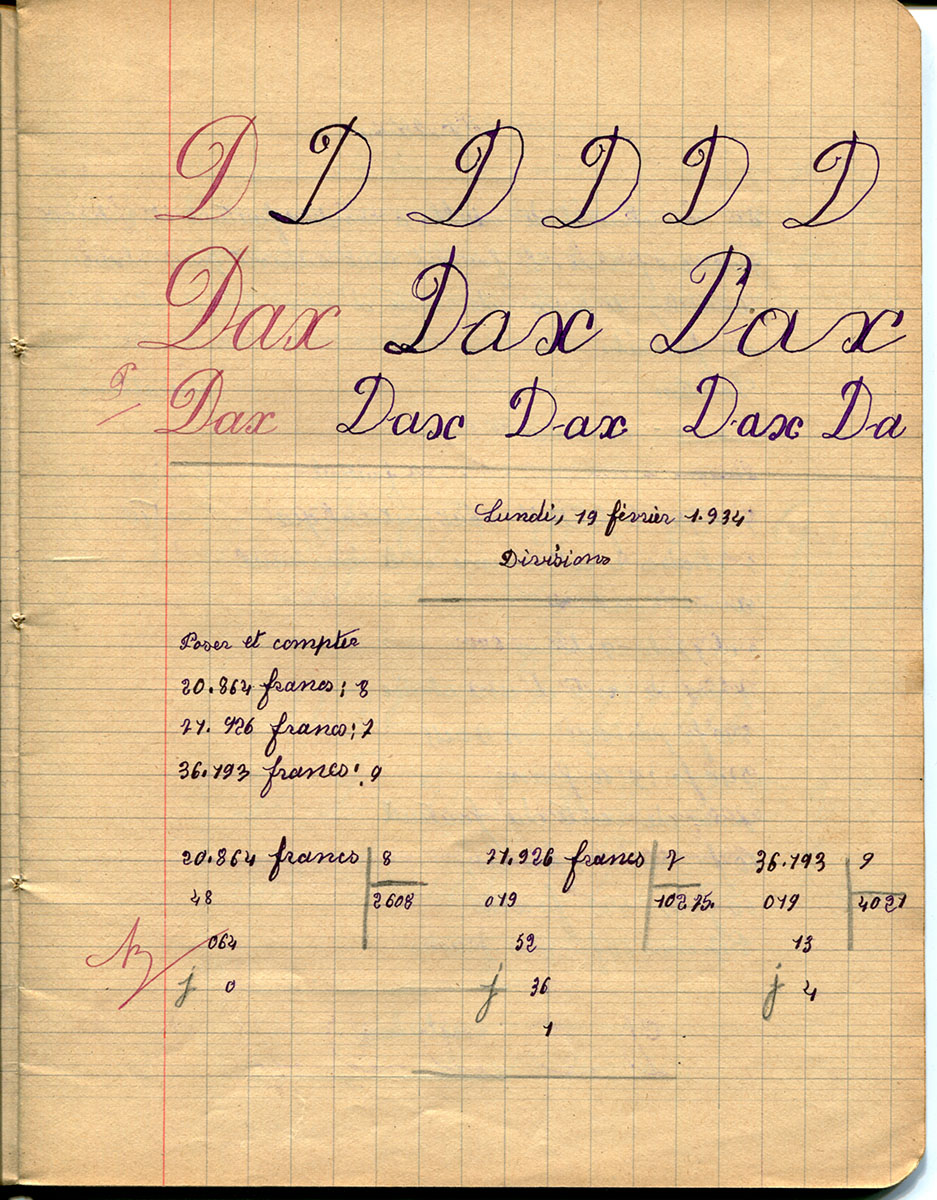 D D D D D D
Dax Dax Dax
Dax Dax Dax Dax Da
Lundi, 19 février 1.934
Divisions
Poser et compter
20.864 francs : 8
71.926 francs : 7
36.193 francs : 9
20.864 francs 8 71.926 francs 7 36.193 9
48 2608 019 10275. 019 4021
064 52 13
j 0 j 36 j 4
1